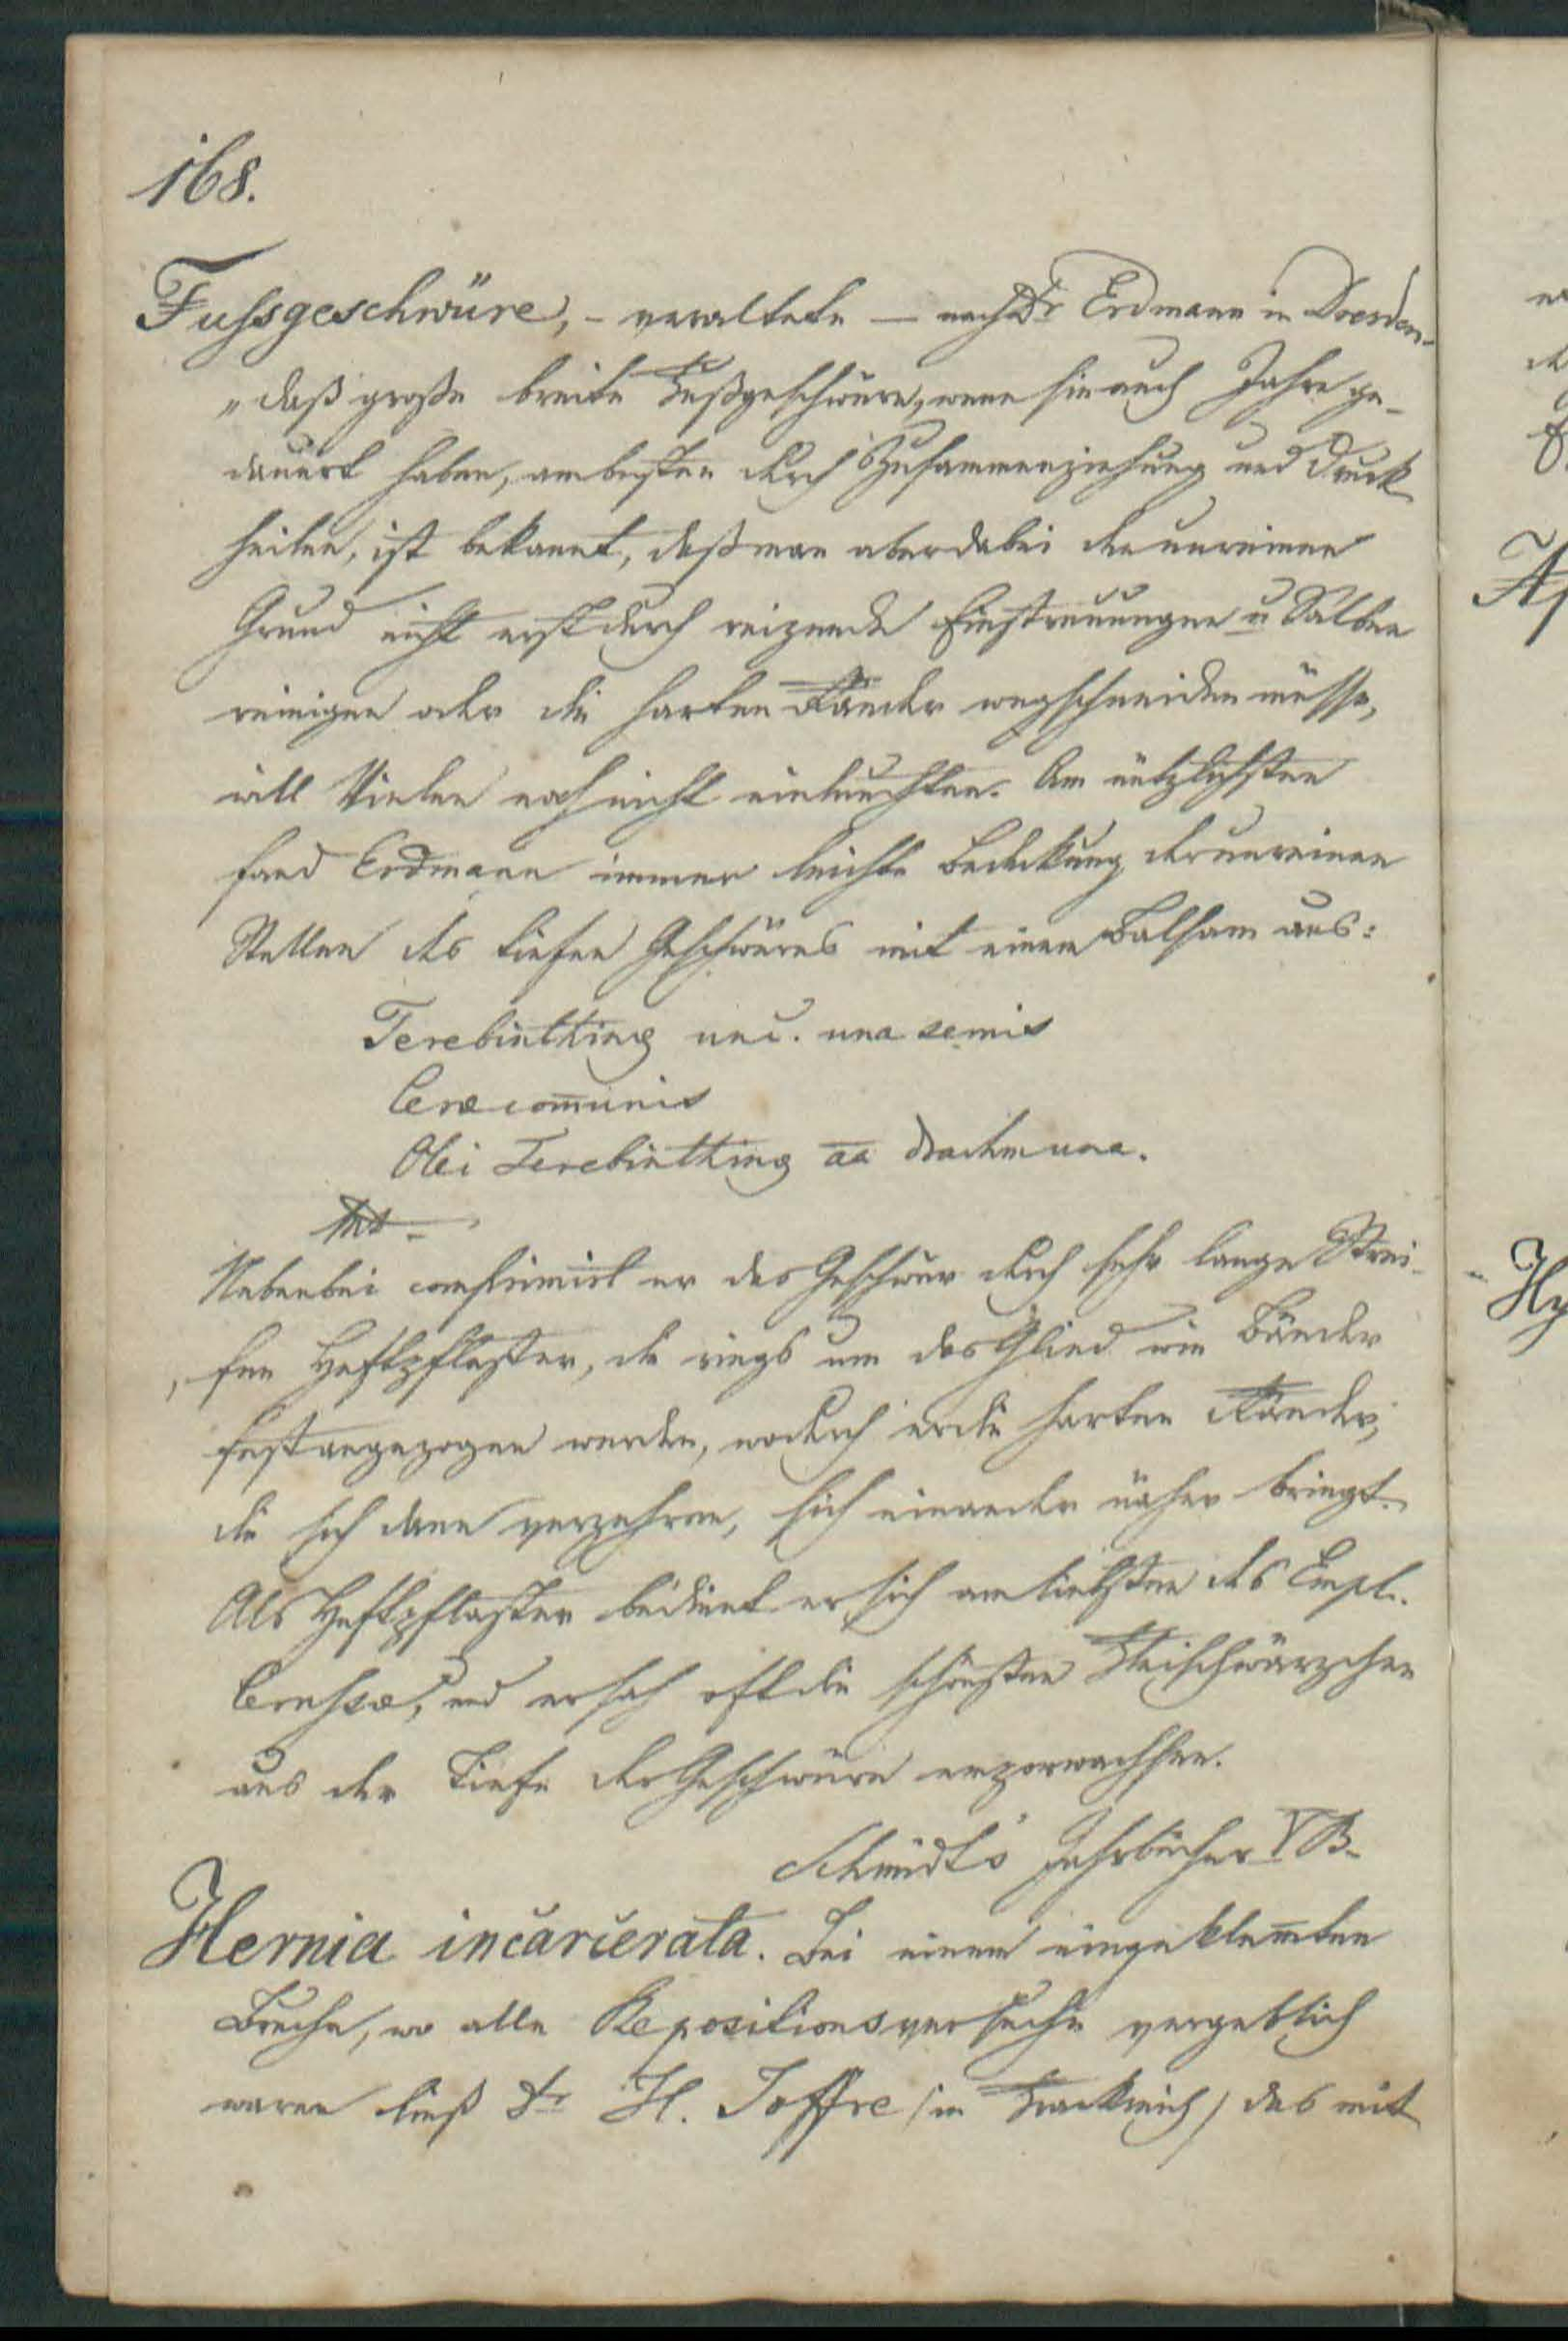 168.
Fussgeschwüre, - veraltete — nach Dr Erdmann in Dresden.
„daß große breite Fußgeschwüre, wenn sie auch Jahre ge-
dauert haben, am besten durch Zusammenziehung und Druck
heilen, ist bekannt, daß man aber dabei den unreinen
Grund nicht erst durch reizende Einstreuungen u Salben
reinigen oder die harten Ränder wegschneiden müsse,
will Vielen noch nicht einleuchten. Am nützlichsten
fand Erdmann immer leichte Bedeckung der unreinen
Stellen des tiefen Geschwüres mit einem Balsam aus:
Terebinthinæ unc. una semis
Ceræ com̅unis
Olei Terebinthinæ aa drachm una.
Nebenbei comprimirt er das Geschwür durch sehr lange Strei-
fen Heftpflaster, die rings um das Glied wie Bänder
fest angezogen werden, wodurch er die harten Ränder,
die sich dann verzehren, sich einander näher bringt.
Als Heftpflaster bedient er sich am liebsten des Empl.
Cerussæ, und er sah oft die schönsten Fleischwärzchen
aus der Tiefe der Geschwüre emporwachsen.
Schmidt's Jahrbücher V B.
Hernia incarcerata. Bei einem eingeklem̅ten
Bruche, wo alle Repositionsversuche vergeblich
waren ließ Dr H. Joffre /in Frankreich/ das mit
Hy